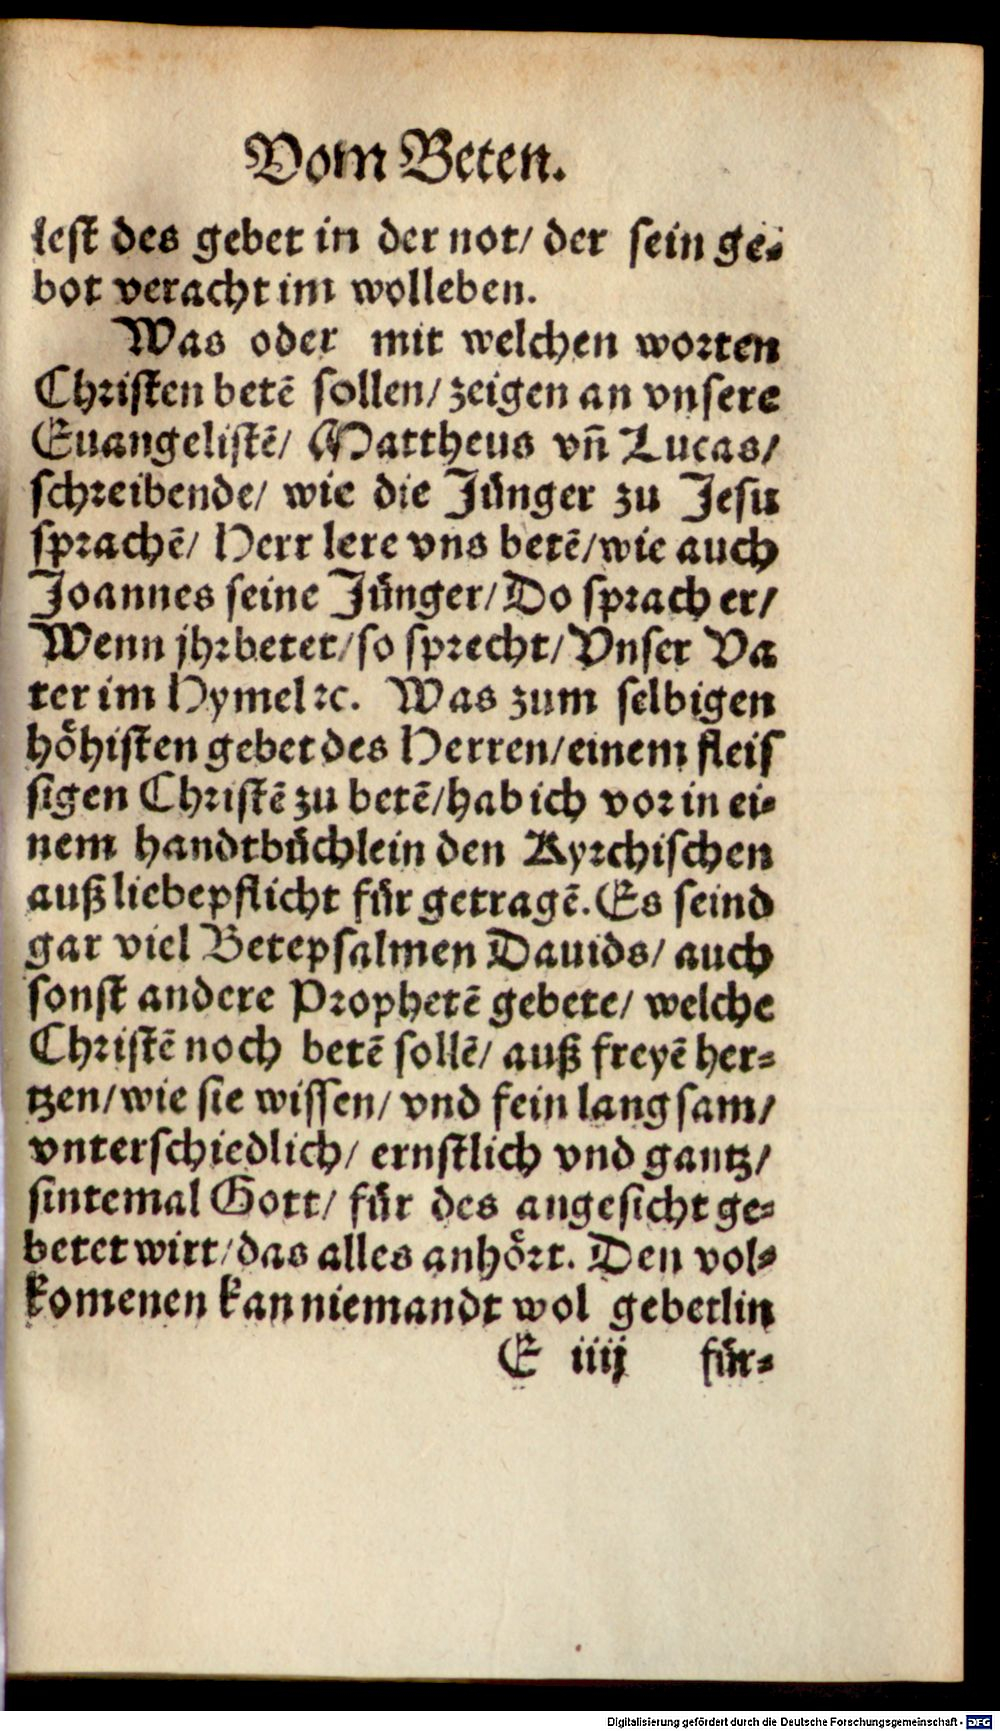 Vom Beten.
lest des gebet in der not/ der sein ge-
bot veracht im wolleben.
Was oder mit welchen worten
Christen betẽ sollen/ zeigen an vnsere
Euangelistẽ/ Mattheus vñ Lucas/
schreibende/ wie die Jünger zu Jesu
sprachẽ/ Herr lere vns betẽ/wie auch
Joannes seine Jünger/ Do sprach er/
Wenn jhr betet/so sprecht/ Vnser Va
ter im Hymel ꝛc. Was zum selbigen
höhisten gebet des Herren/einem fleis
sigen Christẽ zu betẽ/hab ich vor in ei-
nem handtbüchlein den Kyrchischen
auß liebepflicht für getragẽ. Es seind
gar viel Betepsalmen Dauids/ auch
sonst andere Prophetẽ gebete/ welche
Christẽ noch betẽ sollẽ/ auß freyẽ her-
tzen/wie sie wissen/ vnd fein langsam/
vnterschiedlich/ ernstlich vnd gantz/
sintemal Gott/ für des angesicht ge-
betet wirt/das alles anhört. Den vol-
komenen kan niemandt wol gebetlin
E iiij für-
Digitalisierung gefördert durch die Deutsche Forschungsgemeinschaft - DFG